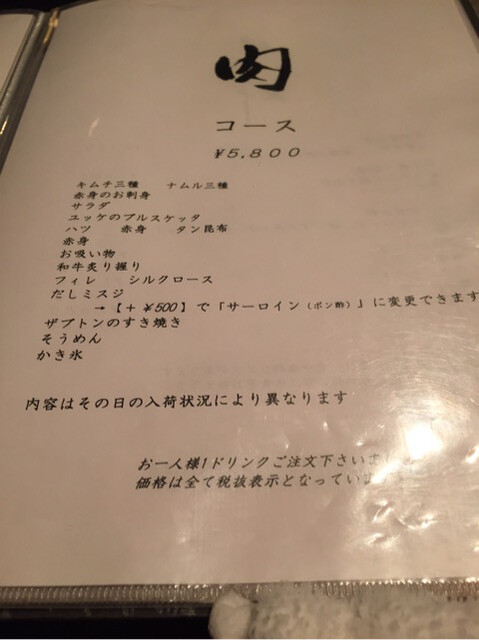 肉
コース
¥5,800
キムチ三種 ナムル三種
赤身のお刺身
サラダ
ユッケのブルスケッタ
ハツ 赤身 タン昆布
赤身
お吸い物
和牛炙り握り
フィレ シルクロース
だしミスジ
→【+ ¥500】で「サーロイン(ポン酢)」に変更できます
ザブトンのすき焼き
そうめん
かき氷
内容はその日の入荷状況により異なります
お一人様1ドリンクご注文下さいま
価格は全て税抜表示となっていま